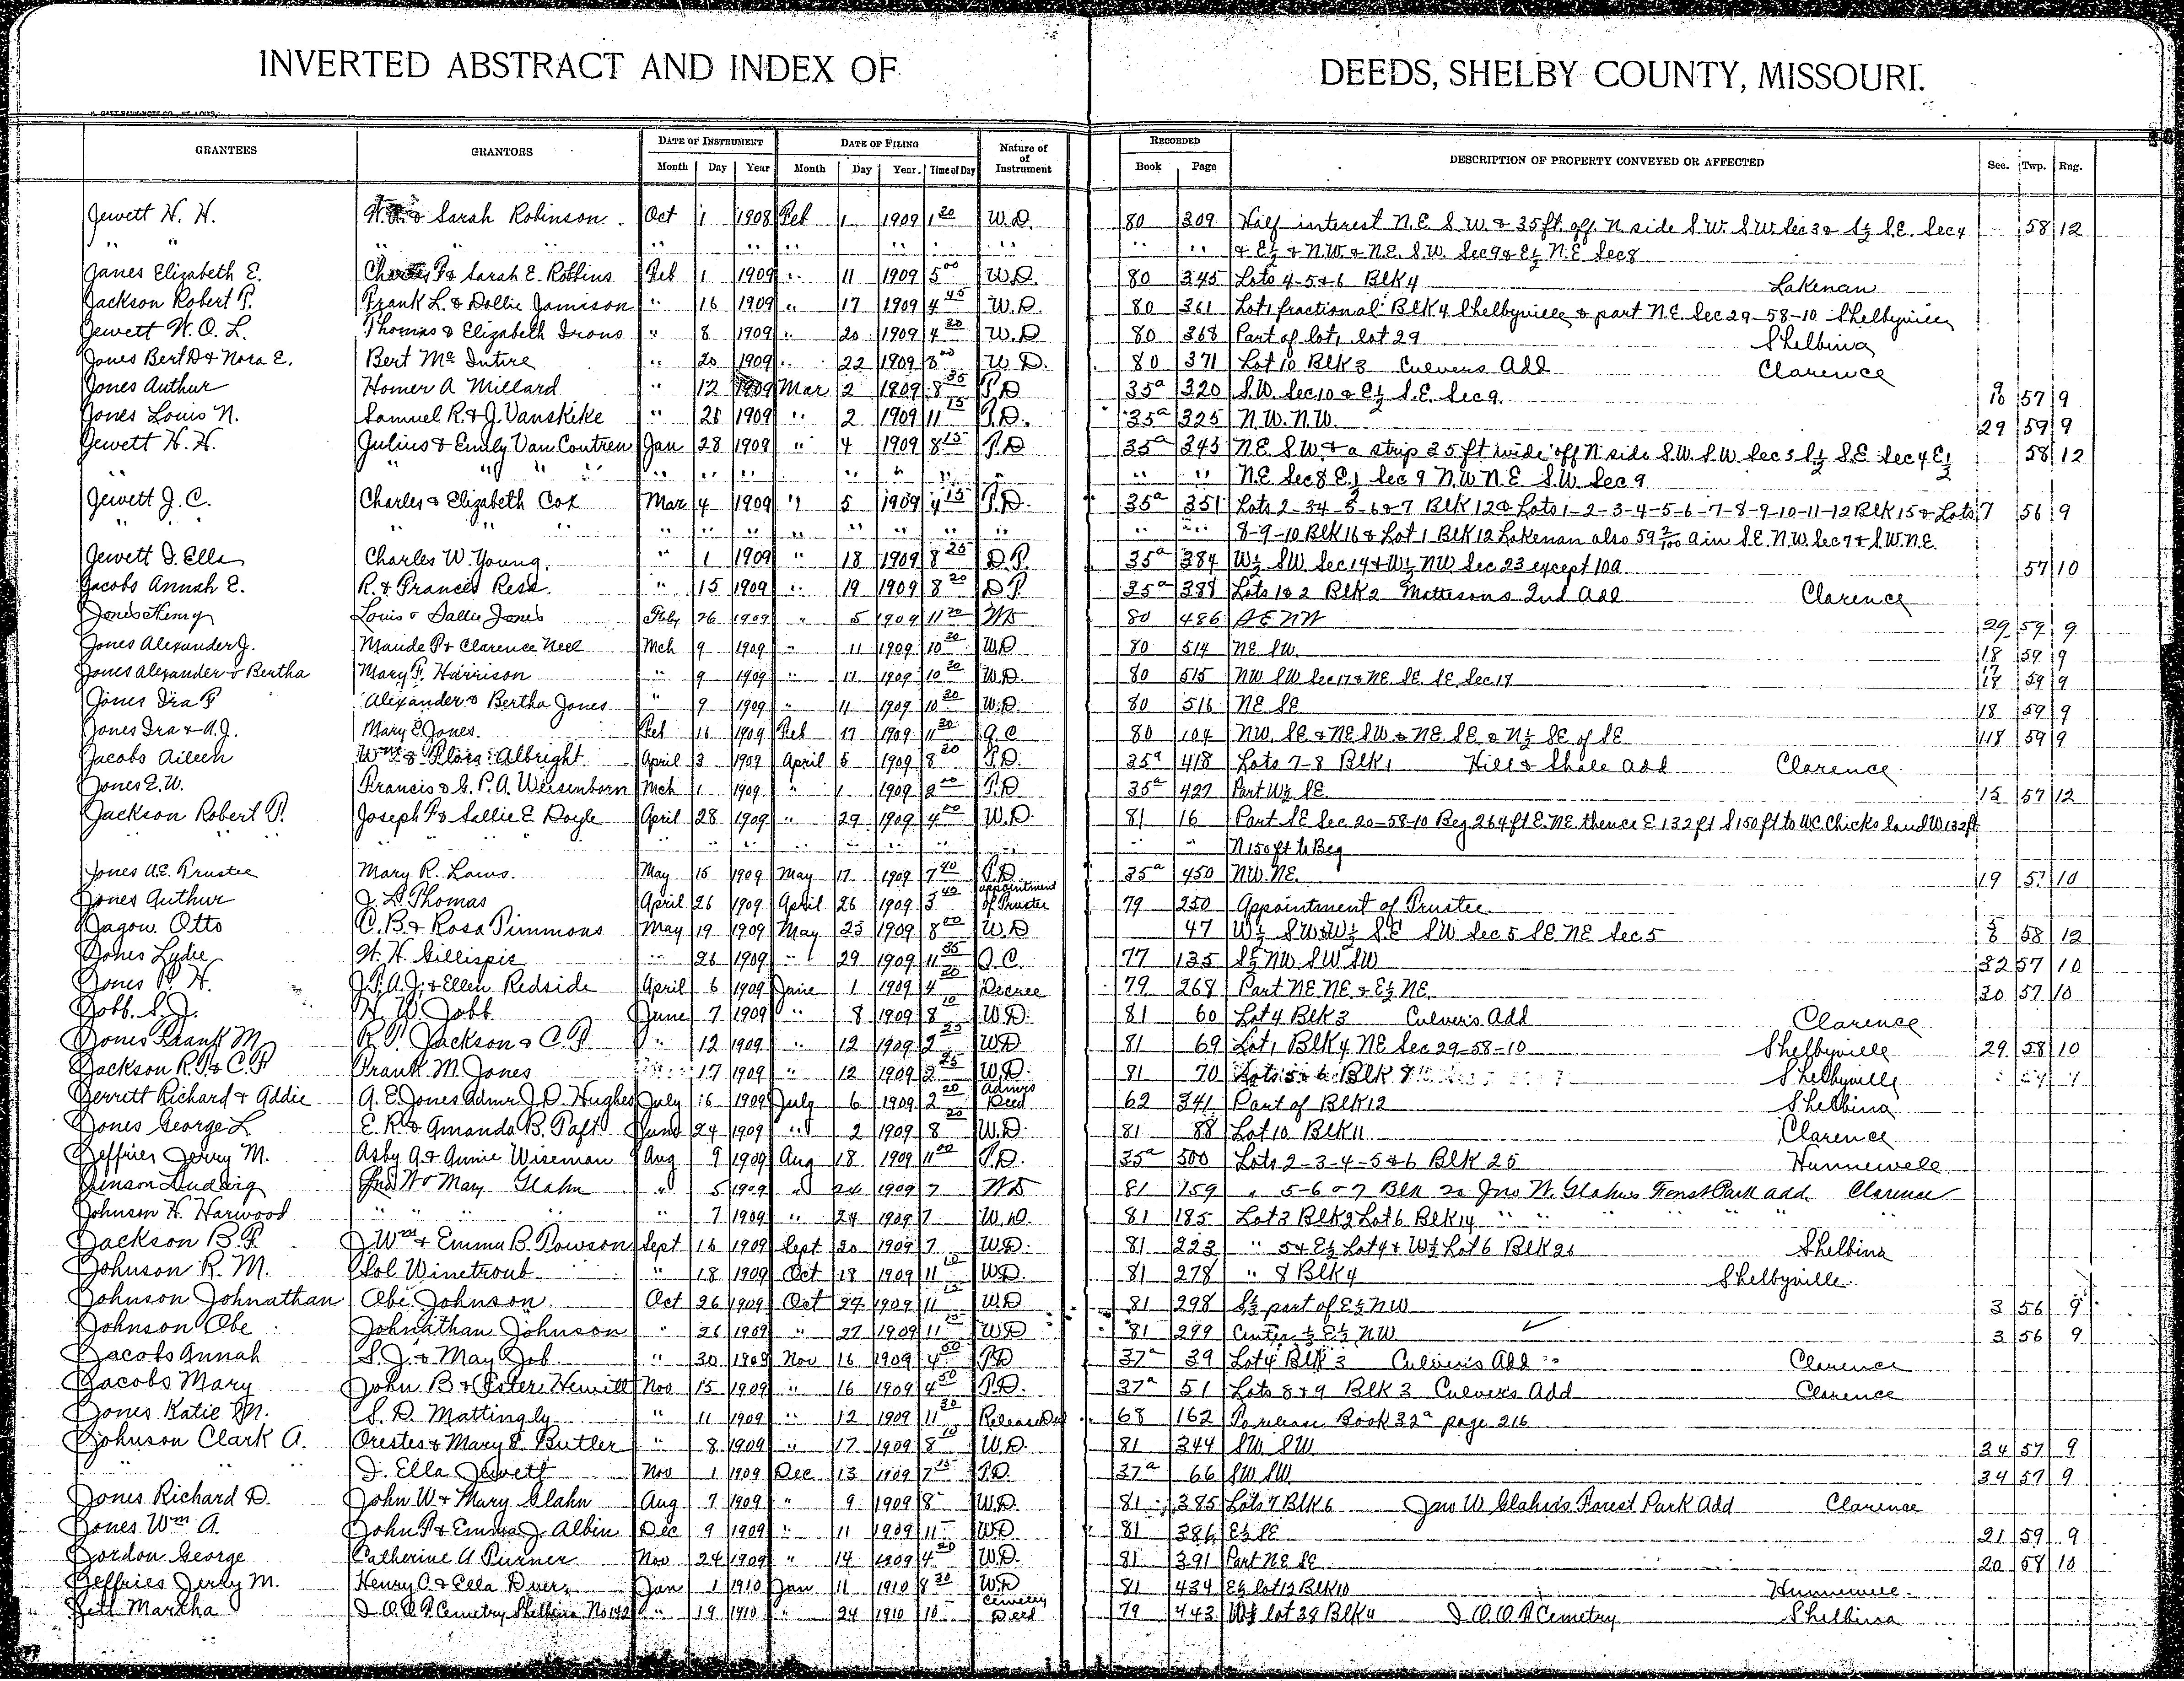 INVERTED ABSTRACT AND INDEX OF DEEDS, SHELBY COUNTY, MISSOURI.
GRANTEES GRANTORS DATE OF INSTRUMENT DATE OF FILING Nature of of Instrument RECORDED DESCRIPTION OF PROPERTY CONVEYED OR AFFECTED Sec. Twp. Rng.
Month Day Year Month Day Year. Time of Day Book Page
Jewett H. H. & Sarah Robinson. Oct 1 1908 Feb 1 1909 1 20 W.D. 80 309 Half interest N.E. S.W. & 35 ft. off N side S.W. S.W. Sec 3 & S½ S.E. Sec 4 58 12
" " " " " " " " " " " & E½ & N.W. & N.E. S.W. Sec 9 & E½ N.E. Sec 8
Janes Elizabeth E. Charles F & Sarah E. Robbins Feb 1 1909 " 11 1909 5 00 W.D. 80 345 Lots 4-5&6 Blk 4 Lakenan
Jackson Robert P. Frank L. & Dollie Jamison " 16 1909 " 17 1909 4 45 W.D. 80 361 Lot 1 fractional Blk 4 Shelbyville & part N.E. Sec 29-58-10 Shelbyville
Jewett W. O. L. Thomas & Elizabeth Irons " 8 1909 " 20 1909 4 20 W.D 80 368 Part of lot 1 lot 29 Shelbina
Jones Bert D & Nora E. Bert Mc Intire " 20 1909 " 22 1909 8 00 W.D. 80 371 Lot 10 Blk 3 Culvers Add Clarence
Jones Arthur Homer A Millard " 12 1909 Mar 2 1909 8 35 T.D 35a 320 S.W. Sec 10 & E½ S.E. Sec 9 9 10 57 9
Jones Louis N. Samuel R. & J. Vanskike " 25 1909 " 2 1909 11 15 T.D. 35a 325 N.W. N.W. 29 59 9
Jewett H. H. Julius & Emily Van Contren Jan 28 1909 " 4 1909 8 15 T.D 35a 343 N.E. S.W. & a strip 35 ft wide off N side S.W. S.W. Sec 3 S½ S.E. Sec 4 E½ 58 12
" " " " " " " " " " N.E. Sec 8 E½ Sec 9 N.W N.E S.W. Sec 9
Jewett J. C. Charles & Elizabeth Cox Mar 4 1909 " 5 1909 4 15 T.D. 35a 351 Lots 2-3 4-5-6&7 Blk 12 & Lots 1-2-3-4-5-6-7-8-9-10-11-12 Blk 15 & Lots 7 56 9
" " " " " " " " " " 8-9-10 Blk 16 & Lot 1 Blk 12 Lakenan also 59 2/100 a in S.E. N.W. Sec 7 & S.W. N.E.
Jewett I. Ella Charles W. Young. " 1 1909 " 18 1909 8 25 D.T. 35a 384 W½ SW Sec 14 & W½ NW Sec 23 except 10a 57 10
Jacobs Annah E. R. & Frances Resa " 15 1909 " 19 1909 8 20 D T. 35a 388 Lots 1&2 Blk 2 Mattesons 2nd Add Clarence
Jones Henry Louis & Sallie Jones Feby 26 1909 " 5 1909 11 20 WD 80 486 SE NW 29 59 9
Jones Alexander J. Maude P & Clarence Neel Mch 9 1909 " 11 1909 10 20 W.D 80 514 NE SW. 18 59 9
Jones Alexander & Bertha Mary F. Harrison " 9 1909 " 11 1909 10 20 W.D. 80 515 NW SW Sec 17 & NE. SE. SE. Sec 17 18 59 9
Jones Ira F Alexander & Bertha Jones " 9 1909 " 11 1909 10 20 W.D. 80 516 NE SE 18 59 9
Jones Ira & A.J. Mary E. Jones. Feb 16 1909 Feb 17 1909 11 20 Q.C 80 104 NW. SE & NE SW & NE. SE & N½ SE of SE 18 59 9
Jacobs Aileen Wm & Flora Albright April 3 1909 April 5 1909 8 20 T.D. 35a 418 Lots 7-8 Blk 1 Hill & Shale Add Clarence
Jones E. W. Francis & G. P. A. Weisenborn Mch 1 1909 " 1 1909 9 00 T.D 35a 427 Part W½ SE. 15 57 12
Jackson Robert P. Joseph F & Sallie E Doyle April 28 1909 " 29 1909 4 00 W.D. 81 16 Part SE Sec 20-58-10 Beg 264 ft E. NE. thence E 132 ft S 150 ft to W.C. Chicks land W 132 ft
" " " " " " " N 150 ft to Beg
Jones A.E. Trustee Mary R. Laws. May 15 1909 May 17 1909 7 40 T.D. 35a 450 NW. NE. 19 57 10
Jones Arthur J. L. Thomas April 26 1909 April 26 1909 3 40 appointment of Trustee 79 250 Appointment of Trustee.
Jagow Otto C. B. & Rosa Timmons May 19 1909 May 23 1909 8 00 W.D 47 W½ SW & W½ SE SW Sec 5 SE NE Sec. 5 58 12
Jones Lydie H. H. Gillispie " 26 1909 " 29 1909 11 35 Q.C. 77 135 S½ NW SW SW 32 57 10
Jones P. H. J.T.A.J. & Ellen Redside April 6 1909 June 1 1909 4 20 Decree 79 268 Part NE NE. & E½ NE. 20 57 10
Jobb. S. J. H. W. Jobb June 7 1909 " 8 1909 8 10 W.D. 81 60 Lot 4 Blk 3 Culver's Add Clarence
Jones Frank M. R. P. Jackson & C. F " 12 1909 " 12 1909 2 25 W.D 81 69 Lot 1 Blk 4 NE Sec 29-58-10 Shelbyville 29 58 10
Jackson R. P. & C. F Frank M. Jones 17 1909 " 12 1909 2 25 W.D. 81 70 Lots 5 & 6 Blk Shelbyville
Jerritt Richard & Addie A. E. Jones Admr J. D. Hughes July 16 1909 July 6 1909 2 20 Admrs Deed 62 341 Part of Blk 12 Shelbina
Jones George L E. R. & Amanda B. Taft June 24 1909 " 2 1909 8 20 W.D. 81 88 Lot 10 Blk 11 Clarence
Jeffries Jerry M. Asby A & Annie Wiseman Aug 9 1909 Aug 18 1909 11 00 T.D. 35a 500 Lots 2-3-4-5&6 Blk 25 Hunnewell
Jinson Ludwig Jno W & Mary Glahn " 5 1909 " 24 1909 7 WD 81 159 " 5-6 & 7 Blk 20 Jno W. Glahns Forest Park add. Clarence
Johnson H. Harwood " " " 7 1909 " 24 1909 7 W.D. 81 185 Lot 3 Blk 9 Lot 6 Blk 14 " " " " "
Jackson B. F. J Wm & Emma B. Powson Sept 16 1909 Sept 20 1909 7 W.D. 81 223 " 5 & E½ Lot 4 & W½ Lot 6 Blk 26 Shelbina
Johnson R. M. Sol Winetroub " 18 1909 Oct 18 1909 11 10 WD. 81 278 " 8 Blk 4 Shelbyville.
Johnson Johnathan Obe Johnson Oct 26 1909 Oct 27 1909 11 15 W.D 81 298 S½ part of E½ NW 3 56 9
Johnson Obe Johnathan Johnson " 26 1909 " 27 1909 11 15 WD 81 299 Center ⅓ E½ NW 3 56 9
Jacobs Annah S. J. & May Job " 30 1909 Nov 16 1909 4 50 T.D 37a 39 Lot 4 Blk 3 Culver's Add Clarence
Jacobs Mary John B & Ester Hewitt Nov 15 1909 " 16 1909 4 50 T.D. 37a 51 Lots 8&9 Blk 3 Culvers Add Clarence
Jones Katie M. S. D. Mattingly " 11 1909 " 12 1909 11 30 Release Deed 68 162 To release Book 32a page 216
Johnson Clark A. Orestes & Mary E. Butler " 8 1909 " 17 1909 8 10 W.D. 81 344 SW SW 34 57 9
" " I. Ella Jewett Nov 1 1909 Dec 13 1909 7 15 T.D. 37a 66 SW SW 34 57 9
Jones Richard D. John W & Mary Glahn Aug 7 1909 " 9 1909 8 W.D. 81 385 Lots 7 Blk 6 Jno W Glahn's Forest Park Add Clarence
Jones Wm A. John F & Emma J. Albin Dec 9 1909 " 11 1909 11 WD 81 386 E½ SE 21 59 9
Jordon George Catherine A Turner Nov 24 1909 " 14 1909 4 20 W.D. 81 391 Part NE SE 20 58 10
Jeffries Jerly M. Henry C. & Ella Dyer Jan 1 1910 Jan 11 1910 8 30 WD 81 434 E½ lot 12 Blk 10 Hunnewell.
Jett Martha I O O F Cemetery Shelbina No 142 " 19 1910 " 24 1910 10 Cemetery Deed 79 443 W½ lot 38 Blk 4 I. O. O. F Cemetery Shelbina